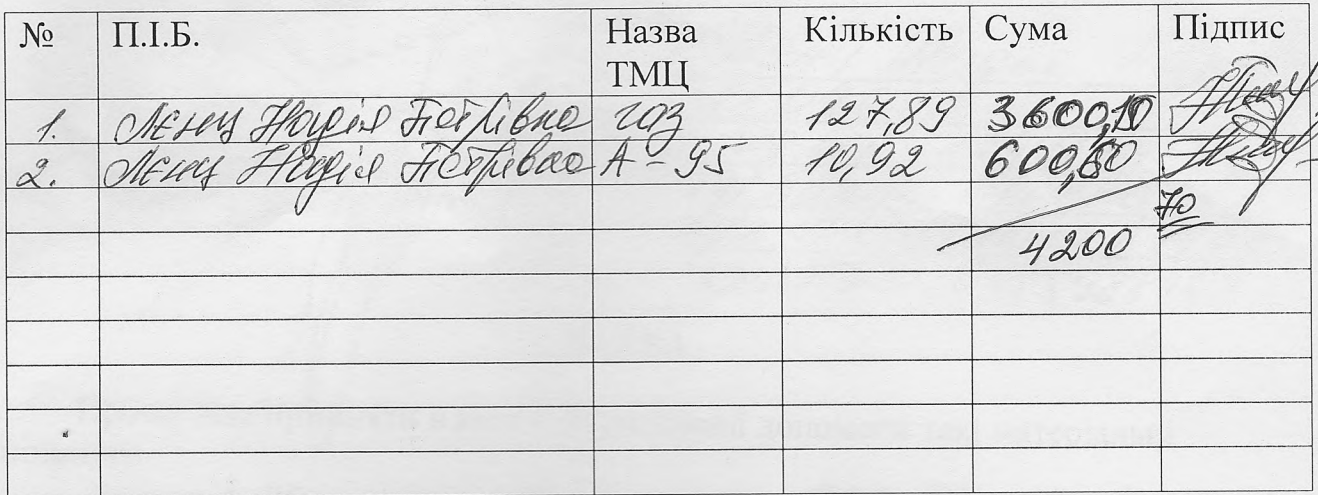 № П.І.Б. Назва ТМЦ Кількість Сума Підпис
1. Лєнц Надія Петрівна газ 127,89 3600,10
2. Лєнц Надія Петрівна А-95 10,92 600,60
70
4200